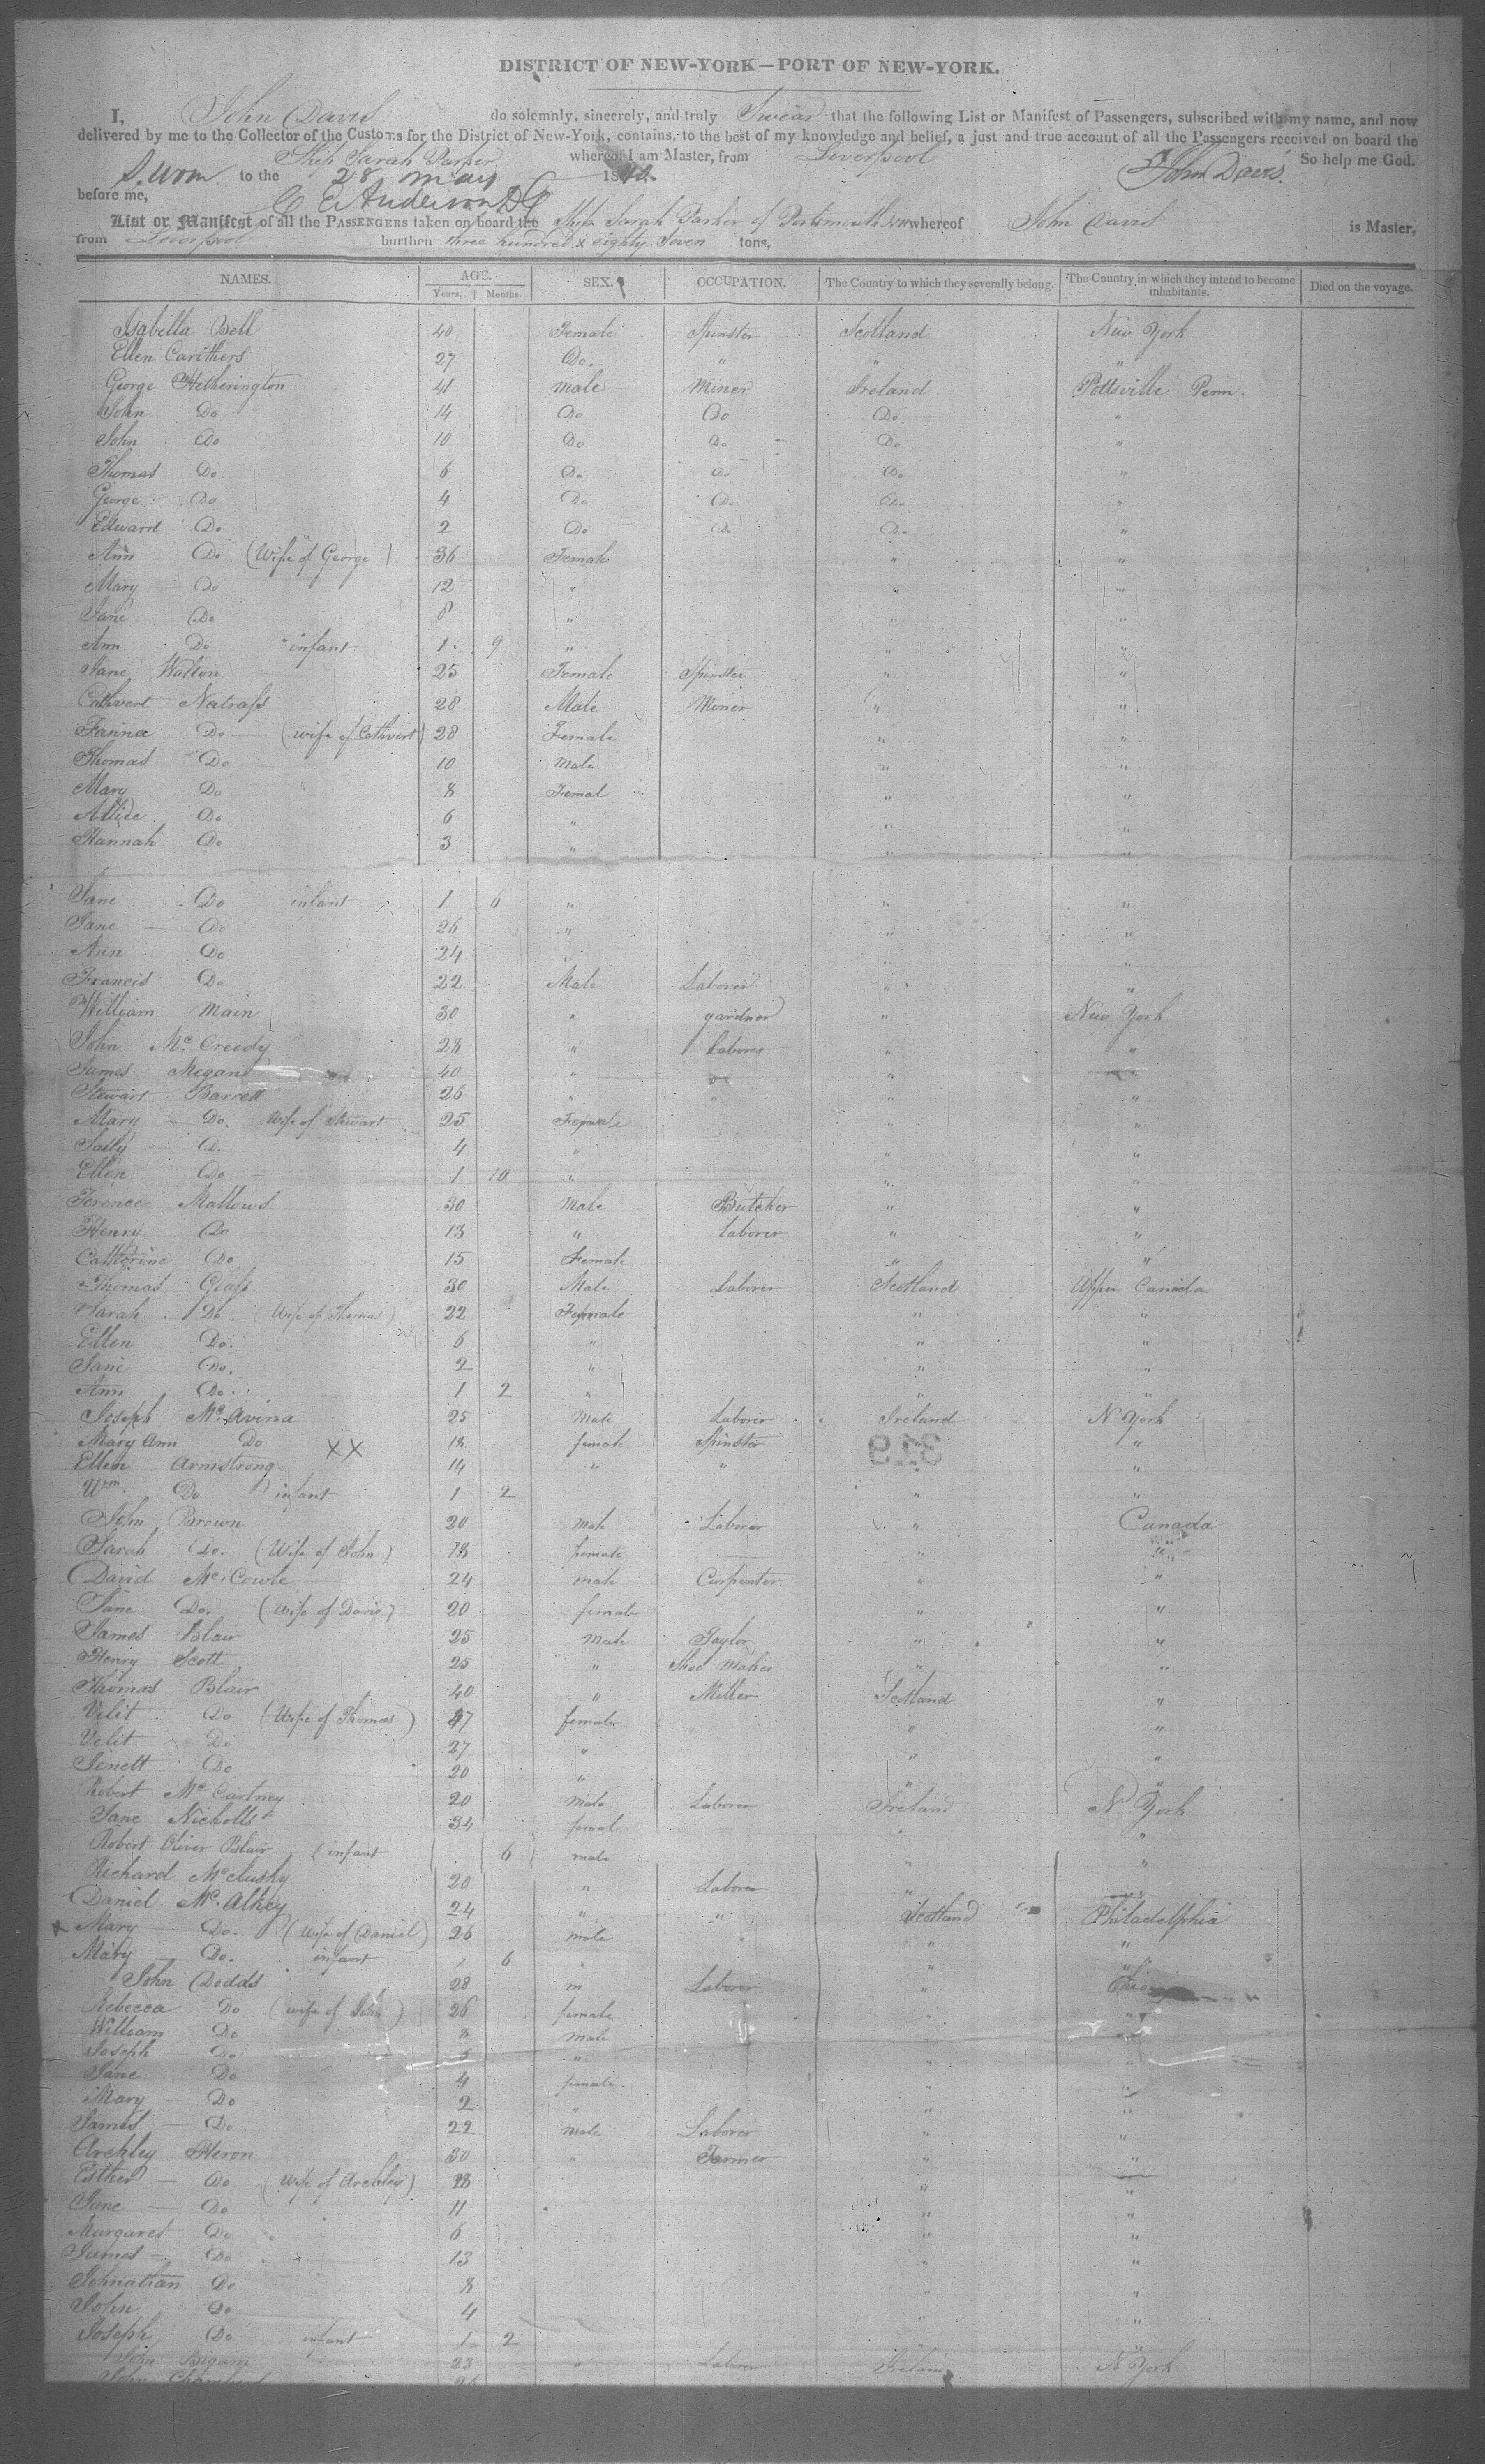 DISTRICT OF NEW-YORK—PORT OF NEW-YORK.
I, John Davis do solemnly, sincerely, and truly Swear that the following List or Manifest of Passengers, subscribed with my name, and now
delivered by me to the Collector of the Customs for the District of New-York, contains, to the best of my knowledge and belief, a just and true account of all the Passengers received on board the
Ship Sarah Parker whereof I am Master, from Liverpool So help me God.
Sworn to the 28 May 18 John Davis.
before me, C Anderson
List or Manifest of all the PASSENGERS taken on board the Ship Sarah Parker of Portsmouth NH whereof John Davis is Master,
from Liverpool burthen three hundred & eighty Seven tons,
NAMES. AGE. SEX. OCCUPATION. The Country to which they severally belong. The Country in which they intend to become inhabitants. Died on the voyage.
Years. Months.
Isabella Bell 40 Female Spinster Scotland New York
Ellen Carithers 27 Do. " " "
George Hetherington 41 male Miner Ireland Pottsville Penn.
John Do 14 Do Do Do. "
John Do 10 Do Do Do "
Thomas Do 6 Do Do Do "
George Do 4 Do Do Do "
Edward Do 2 Do Do Do "
Ann Do (Wife of George) 36 Female " "
Mary Do 12 " " "
Jane Do 8 " " "
Ann Do infant 1 9 " " "
Jane Walton 25 Female Spinster " "
Cuthvert Natrass 28 Male Miner " "
Fanna Do (wife of Cuthvert) 28 Female " "
Thomas Do 10 Male " "
Mary Do 8 Femal " "
Allice Do 6 " " "
Hannah Do 3 " " "
Jane Do infant 1 6 " " "
Jane Do 26 " " "
Ann Do 24 " " "
Francis Do 22 Male Laborer " "
William Main 30 " gardner " New York
John Mc Creedy 28 " Laborer " "
James Megan 40 " " " "
Stewart Barrett 26 " " " "
Mary Do. Wife of Stewart 25 Female " "
Sally D. 4 " " "
Ellen Do 1 10 " " "
Terence Mallows 30 Male Butcher " "
Henry Do 13 " laborer " "
Catherine Do 15 Female " "
Thomas Glass 30 Male Laborer Scotland Upper Canada
Sarah Do. (Wife of Thomas) 22 Female " "
Ellen Do. 6 " " "
Jane Do. 2 " " "
Ann Do. 1 2 " " "
Joseph Mc Avina 25 Male Laborer Ireland N York
Mary Ann Do XX 18 female Spinster " "
319
Ellen Armstrong 14 " " "
Wm. Do infant 1 2 " "
John Brown 20 Male Laborer " Canada
Sarah Do. (Wife of John) 18 female " "
David Mc Cowle 24 male Carpenter " "
Jane Do. (Wife of Davis) 20 female " "
James Blair 25 Male Taylor " "
Henry Scott 25 " Shoe Maker " "
Thomas Blair 40 " Miller Scotland "
Velit Do (Wife of Thomas) 47 female " "
Velit Do 27 " " "
Jenett Do 20 " " "
Robert Mc Cartney 20 Male Laborer Ireland N York
Jane Nicholls 34 femal " "
Robert Oliver Blair (infant 6 male " "
Richard Mc clusky 20 " Laborer "
Daniel Mc. Alkey 24 " " Scotland Philadelphia
x Mary Do. (Wife of Daniel) 26 male " "
Mary Do. infant 6 " " "
John Dodds 28 m Laborer " Ohio
Rebecca Do (wife of John) 26 female " "
William Do 8 Male "
Joseph Do 5 " " "
Jane Do 4 female " "
Mary Do 2 " " "
James Do 22 Male Laborer " "
Archley Heron 30 " Farmer " "
Esther Do (Wife of Archley) 28 " "
Jane Do 11 " "
Margaret Do 6 " "
James Do 13 " "
Johnathan Do 8 " "
John Do 4 " "
Joseph Do infant 1 2 "
John Bigam 23 " Laborer Ireland N York
John Chambers 26